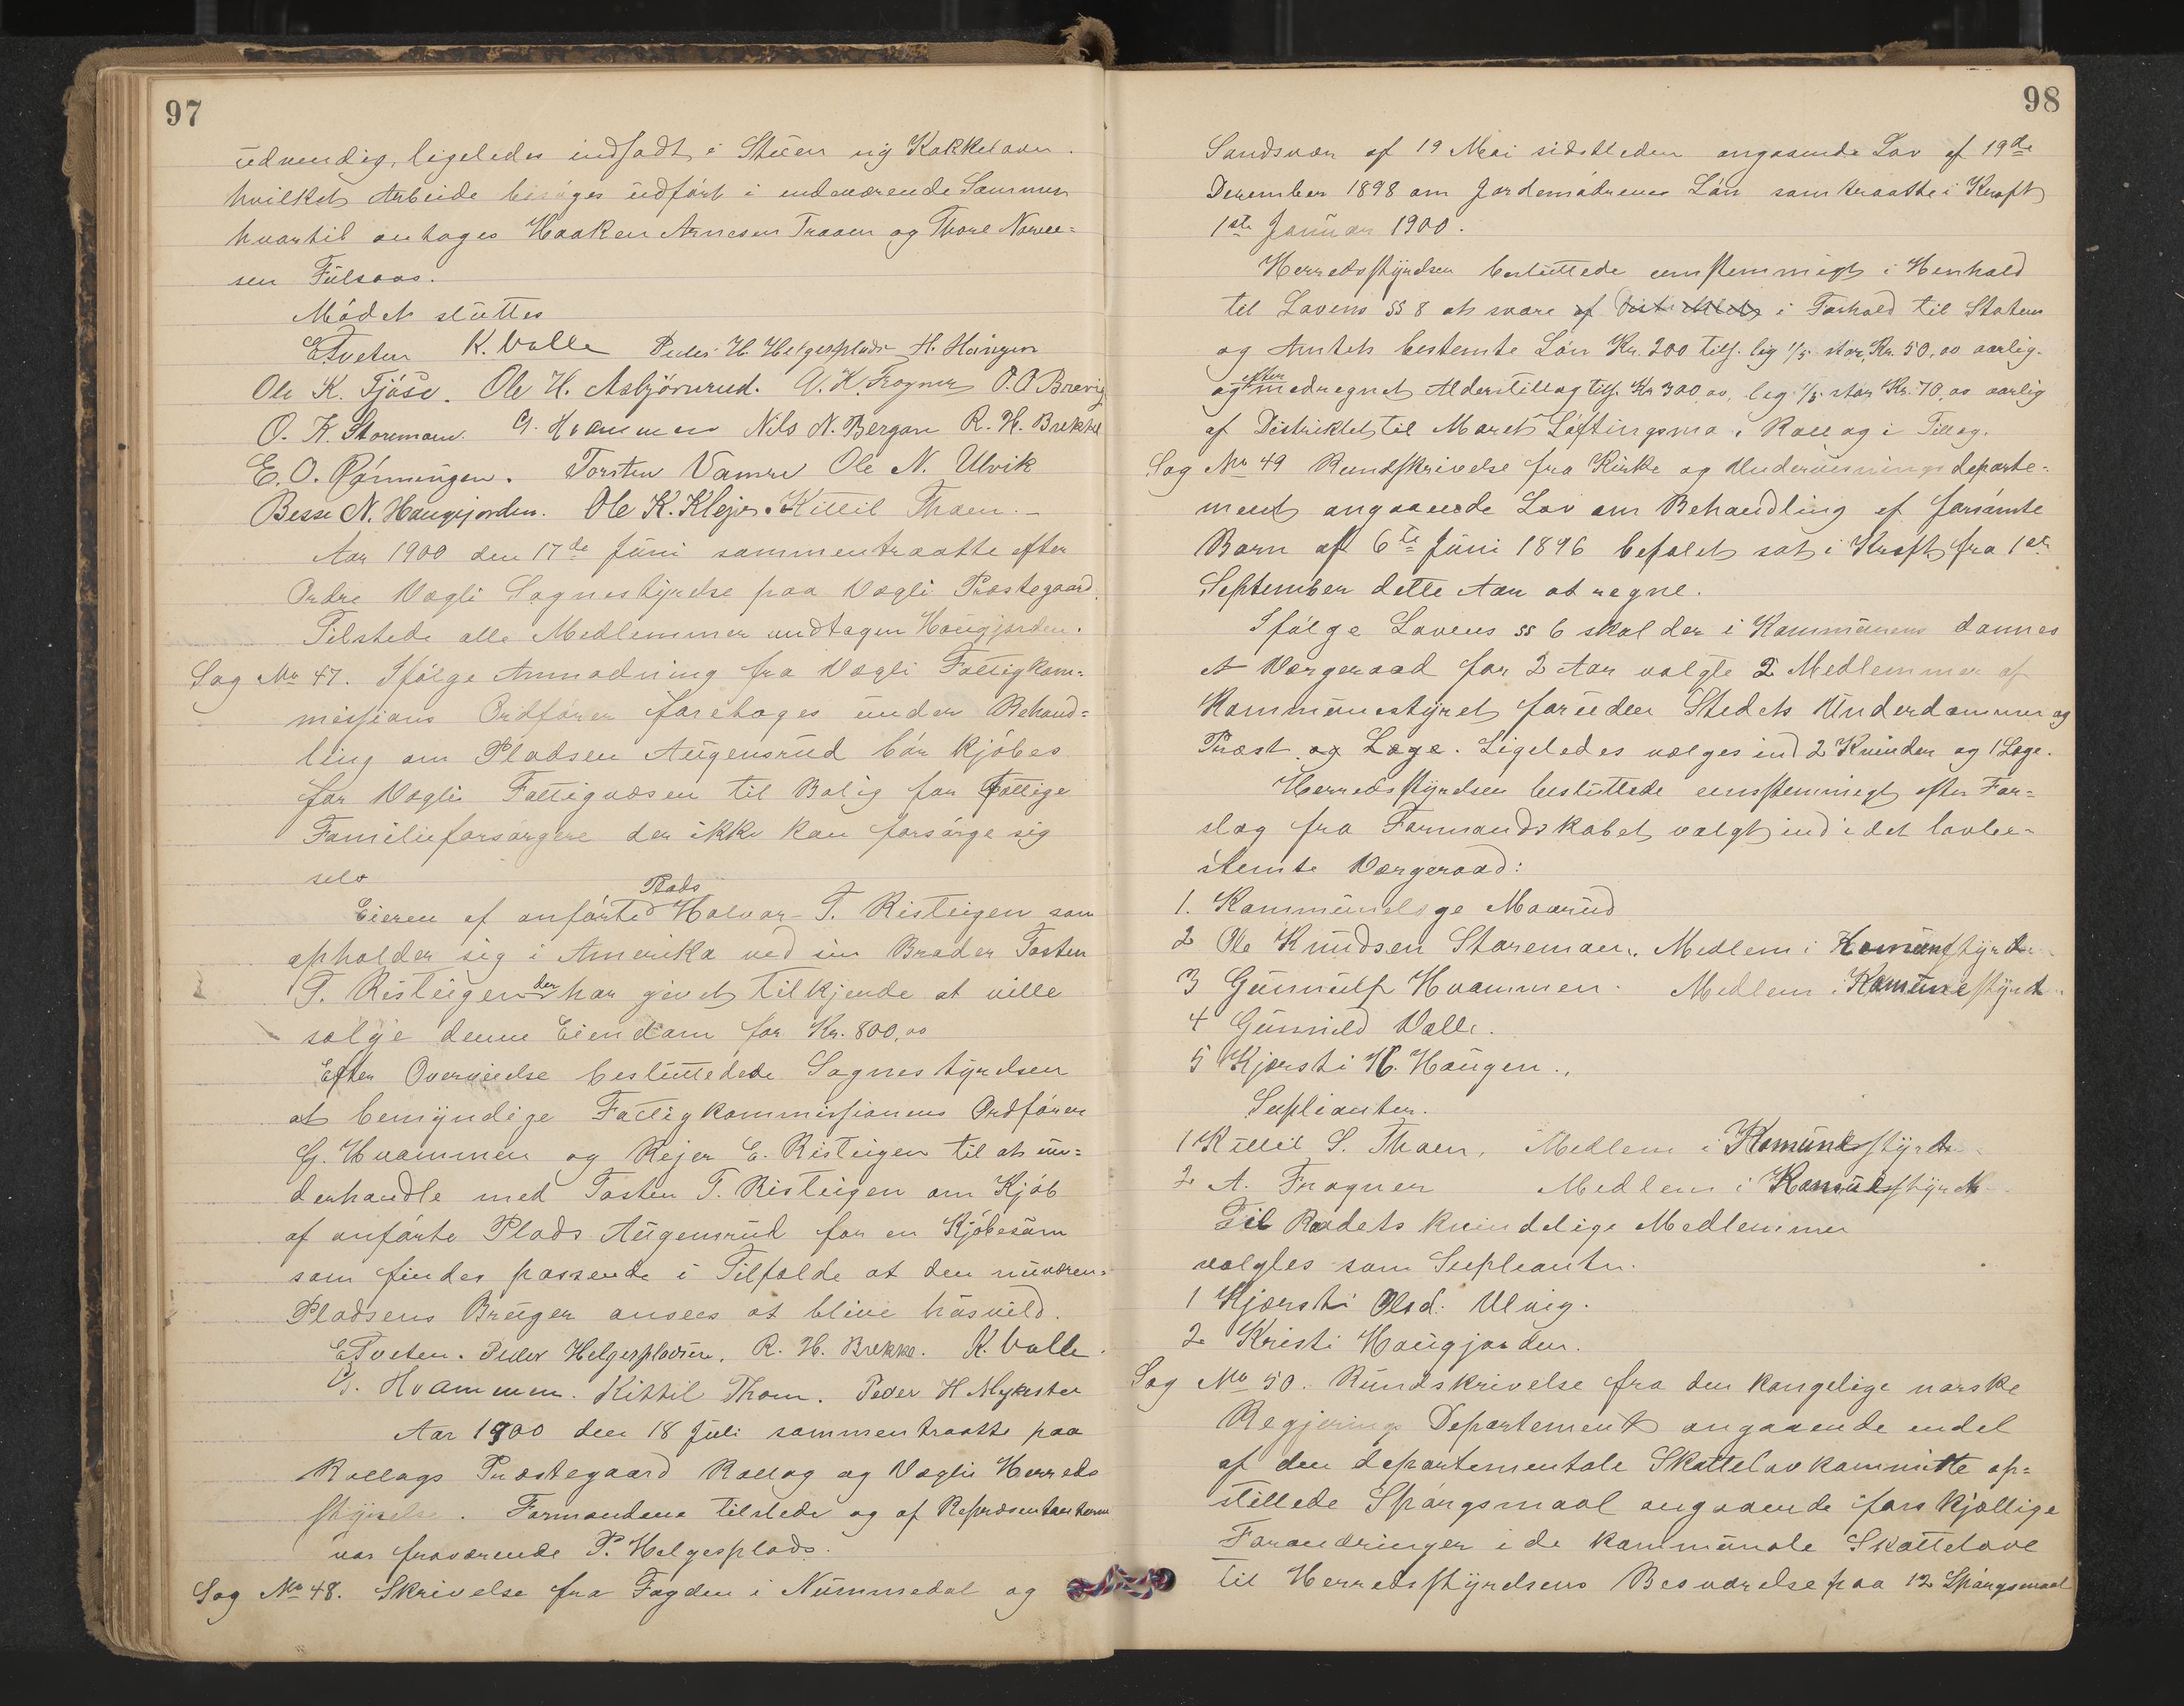 97
udvendig, ligeledes indsadt i Stuen ny Kakkelovn.
hvilket Arbeide besörges udfört i indeværende Sommer
hvortil antages Haaken Arnesen Traaen og Thore
sen Fulsaas.
Mödet sluttes
E Tveten K. Valle Peder H. Helgesplads H. Haugen
Ole K. Fjöse. Ole H. Asbjörnrud. A. K. Frogner O. O Brevig
O. K. Storemoen. G. Hvammen Nils N. Bergan R. H. Brekke
E. O. Rönningen. Torsten Vamre Ole N. Ulvik
Besse N. Haugjorden. Ole K. Klejve. Kittil Thoen.
Aar 1900 den 17de Juni sammentraatte efter
Ordre Vægli Sognestyrelse paa Vægli Præstegaard.
Tilstede alle Medlemmer undtagen Haugjorden.
Sag No 47. Ifölge Anmodning fra Vægli Fattigkom-
missions Ordförer foretoges under Behand-
ling om Pladsen Augensrud bör kjöbes
for Vægli Fattigvæsen til Bolig for Fattige
Familieforsörgere der ikke kan forsörge sig
selv
Eieren af anförte Plads Halvor T. Risteigen som
opholder sig i Amerika ved sin Broder Tosten
T. Risteigen der har givet tilkjende at ville
sælge denne Eiendom for Kr. 800,00
Efter Overveielse besluttedede Sognestyrelsen
at bemyndige Fattigkommissionens Ordförer
G. Hvammen og Rejer E. Risteigen til at un-
derhandle med Tosten T. Risteigen om Kjöb
af anförte Plads Augensrud for en Kjöbesum
som findes passende i Tilfælde at den nuværen-
Pladsens Bruger ansees at blive husvild.
E Tveten. Peder Helgesplads. R. H. Brekke. K. Valle.
G. Hvammen. Kittil Thoen. Peder H Myksten
Aar 1900 den 18 Juli sammentraatte paa
Rollags Præstegaard Rollag og Vægli Herreds
styrelse. Formændene tilstede og af Repræsentanterne
var fraværende P. Helgesplads.
Sag No 48. Skrivelse fra Fogden i Nummedal og
98
Sandsvær af 19 Mai sidstleden angaaende Lov af 19de
December 1898 om Jordemödrenes Lön som traatte i Kraft
1ste Januar 1900.
Herredsstyrelsen besluttede eenstemmigt i Henhold
til Lovens §§ 8 at svare af Distriktet i Forhold til Statens
og Amtets bestemte Lön Kr. 200 tils. lig 1/5 stor, Kr. 50,00 aarlig.
og efter medregnet Alderstillæg tils. Kr 300,00, lig 1/5 stor Kr. 70,00 aarlig
af Distriktet til Maret Löftingsmo i Rollag i Tillæg.
Sag No 49 Rundskrivelse fra Kirke og Undervisningsdeparte-
ment angaaende Lov om Behandling af forsömte
Börn af 6te Juni 1896 befalet sat i Kraft fra 1ste
September dette Aar at regne.
Ifölge Lovens §§ 6 skal der i Kommunene dannes
et Værgeraad for 2 Aar valgte 2 Medlemmer af
Kommunestyret foruden Stedets Underdommer og
Præst og Læge. Ligeledes vælges ind 2 Kvinder og 1 Læge.
Herredsstyrelsen besluttede eenstemmigt efter For-
slag fra Formandskabet valgt ind i det lovbe-
stemte Værgeraad:
1. Kommunelæge Maarud
2 Ole Knudsen Storemoen. Medlem i Komunestyret
3 Gunnulf Hvammen. Medlem i Komunestyret
4 Gunnild Valle.
5 Kjersti H. Haugen.
Suplianter.
1 Kittil S. Thoen, Medlem i Komunestyret
2 A. Frogner Medlem i Komunestyret
Til Raadets kvindelige Medlemmer
valgtes som Supleanter.
1 Kjersti Olsd. Ulvig.
2 Kristi Haugjorden.
Sag No 50. Rundskrivelse fra den kongelige norske
Regjerings Departement angaaende endel
af den departementale Skattelovkommitte op-
stillede Spörgsmaal angaaende forskjellige
Forandringer i de kommunale Skattelove
til Herredsstyrelsens Besvarelse paa 12 Spörgsmaal